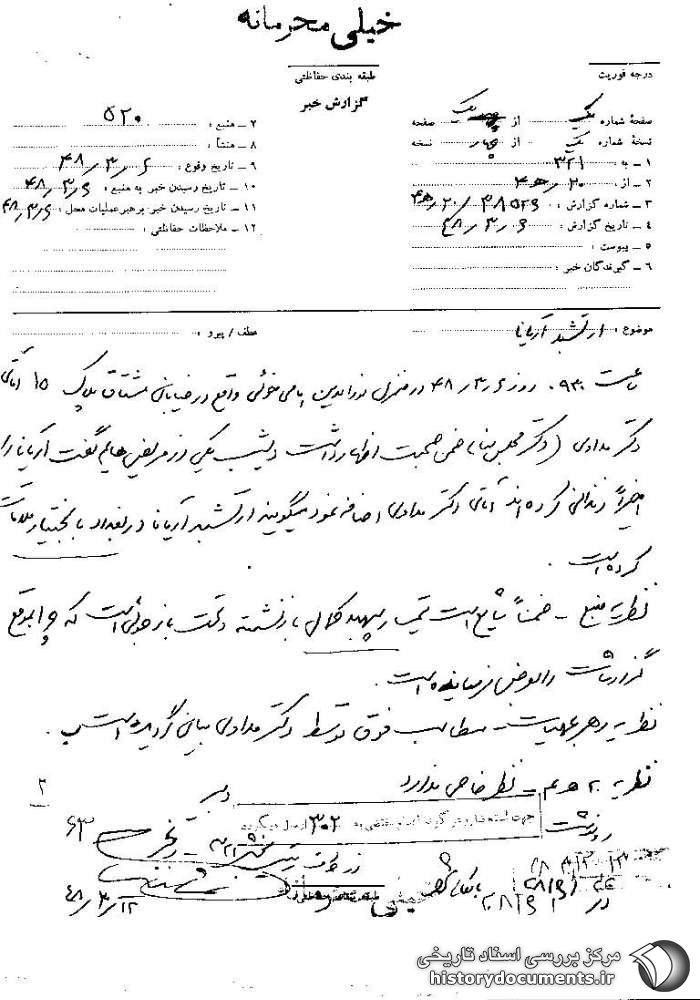 خیلی محرمانه
درجه فوریت
طبقه بندی حفاظتی
گزارش خبر
صفحه شماره یک از یک صفحه
نسخه شماره یک از چهار نسخه
۱ - به : ۳۲۱
۲ - از : ۲۰ ر ه ۴
۳ - شماره گزارش : ۳۸۵۲۹ / ۲۰ ر ه ۴
۴ - تاریخ گزارش : ۴۸/۳/۶
۵ - پیوست :
۶ - گیرندگان خبر :
۷ - منبع : ۵۲۰
۸ - منشأ :
۹ - تاریخ وقوع : ۴۸/۳/۶
۱۰ - تاریخ رسیدن خبر به منبع : ۴۸/۳/۶
۱۱ - تاریخ رسیدن خبر برهبر عملیات محل : ۴۸/۳/۶
۱۲ - ملاحظات حفاظتی :
موضوع : ارتشبد آریانا
عطف / پیرو :
ساعت ۰۹۳۰ روز ۴۸/۳/۶ در منزل نورالدین امامی خوئی واقع در خیابان مشتاق پلاک ۱۵ آقای
دکتر مدادی (دکتر مجلس سنا) ضمن صحبت اظهار داشت دیشب یکی از مریض هایم گفت آریانا را
اخیراً زندانی کرده اند آقای دکتر مدادی اضافه نمود میگویند ارتشبد آریانا در بغداد با بختیار ملاقات
کرده است .
نظریه منبع - ضمناً شایع است تیمسار سپهبد کمال بازنشسته تحت بازجوئی است که چرا بموقع
گزارشات را بعرض نرسانیده است .
نظریه رهبر عملیات - مطالب فوق توسط دکتر مدادی بیان گردیده است .
نظریه ۲۰ ه ۴ - نظر خاصی ندارد
۳۰۲
۴۸/۳/۱۲
خیلی محرمانه
مرکز بررسی اسناد تاریخی
historydocuments.ir